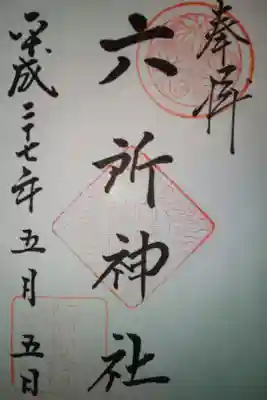 奉拝
六所神社
平成二十七年五月五日